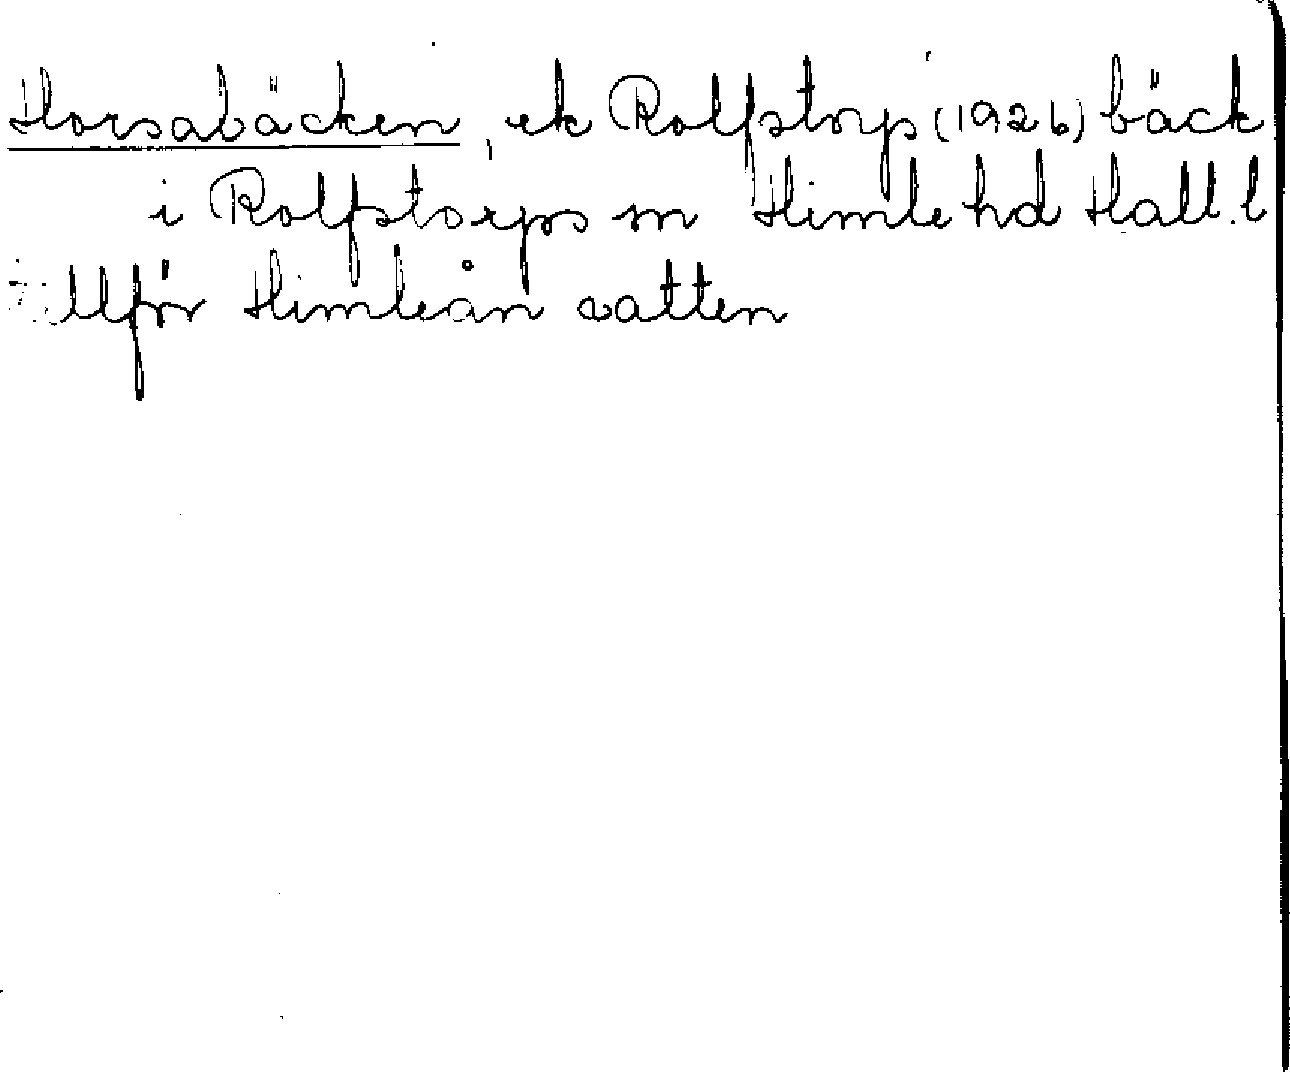 Horsabäcken, ek Rolfstorp (1926) bäck
i Rolfstorps sn Himle hd Hall.l
tillför Himleån vatten